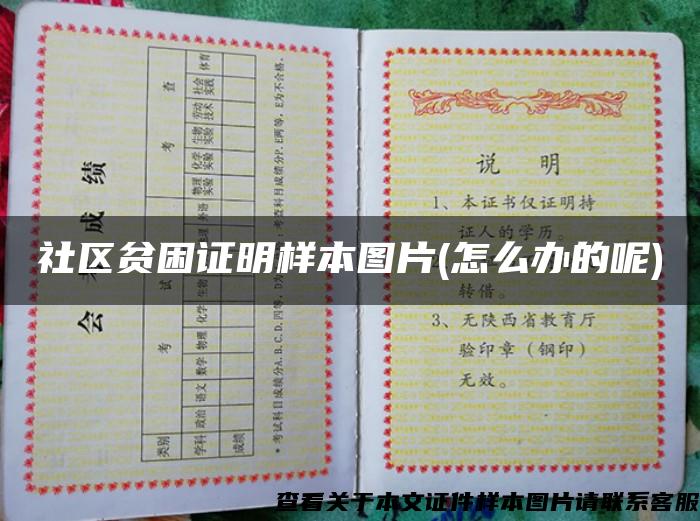 会 成 绩
类别 考 试 考 查
学科 政治 语文 数学 物理 化学 生物 地理 外语 物理实验 化学实验 生物实验 劳动技术 社会实践 体育
成绩
* 考试科目成绩分A.B.C.D.四等，D为 考查科目成绩分P.E两等，E为不合格。
说 明
1、本证书仅证明持
证人的学历。
社区贫困证明样本图片(怎么办的呢)
转借。
3、无陕西省教育厅
验印章（钢印）
无效。
查看关于本文证件样本图片请联系客服